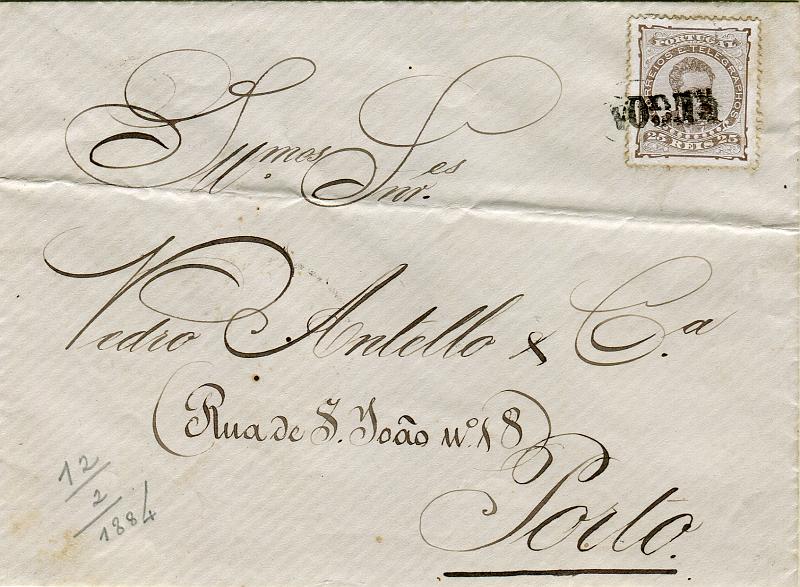 PORTUGAL
CORREIOS E TELEGRAPHOS
25 REIS 25
Snr.es
Pedro Antello & C.a
(Rua de S. João nº 18)
Porto.
12
2
1884